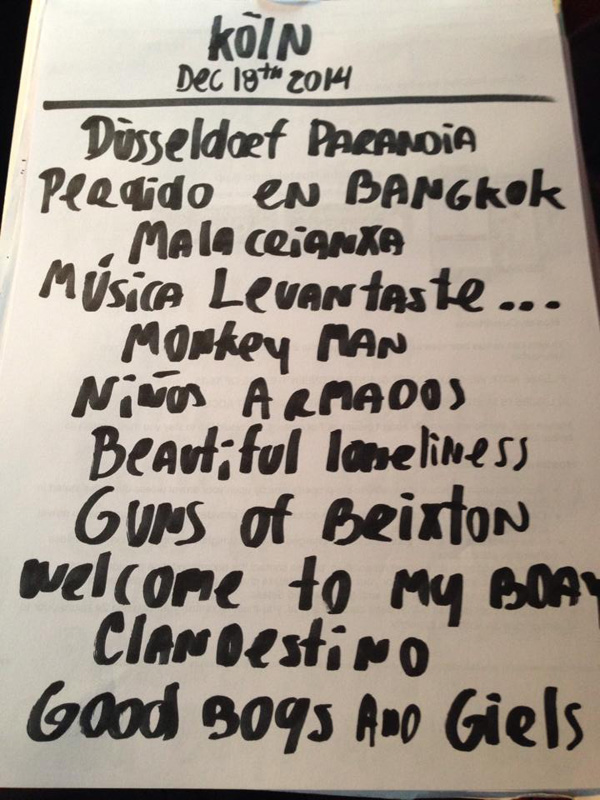 KÖLN
Dec 18th 2014
Düsseldorf PARANOiA
Perdido en BANGKok
Malacrianxa
Música Levantaste ...
Monkey MAN
Niños ARMADOS
Beautiful loneliness
Guns of Brixton
Welcome to my BDAY
CLANDestiNO
Good Boys AND Girls